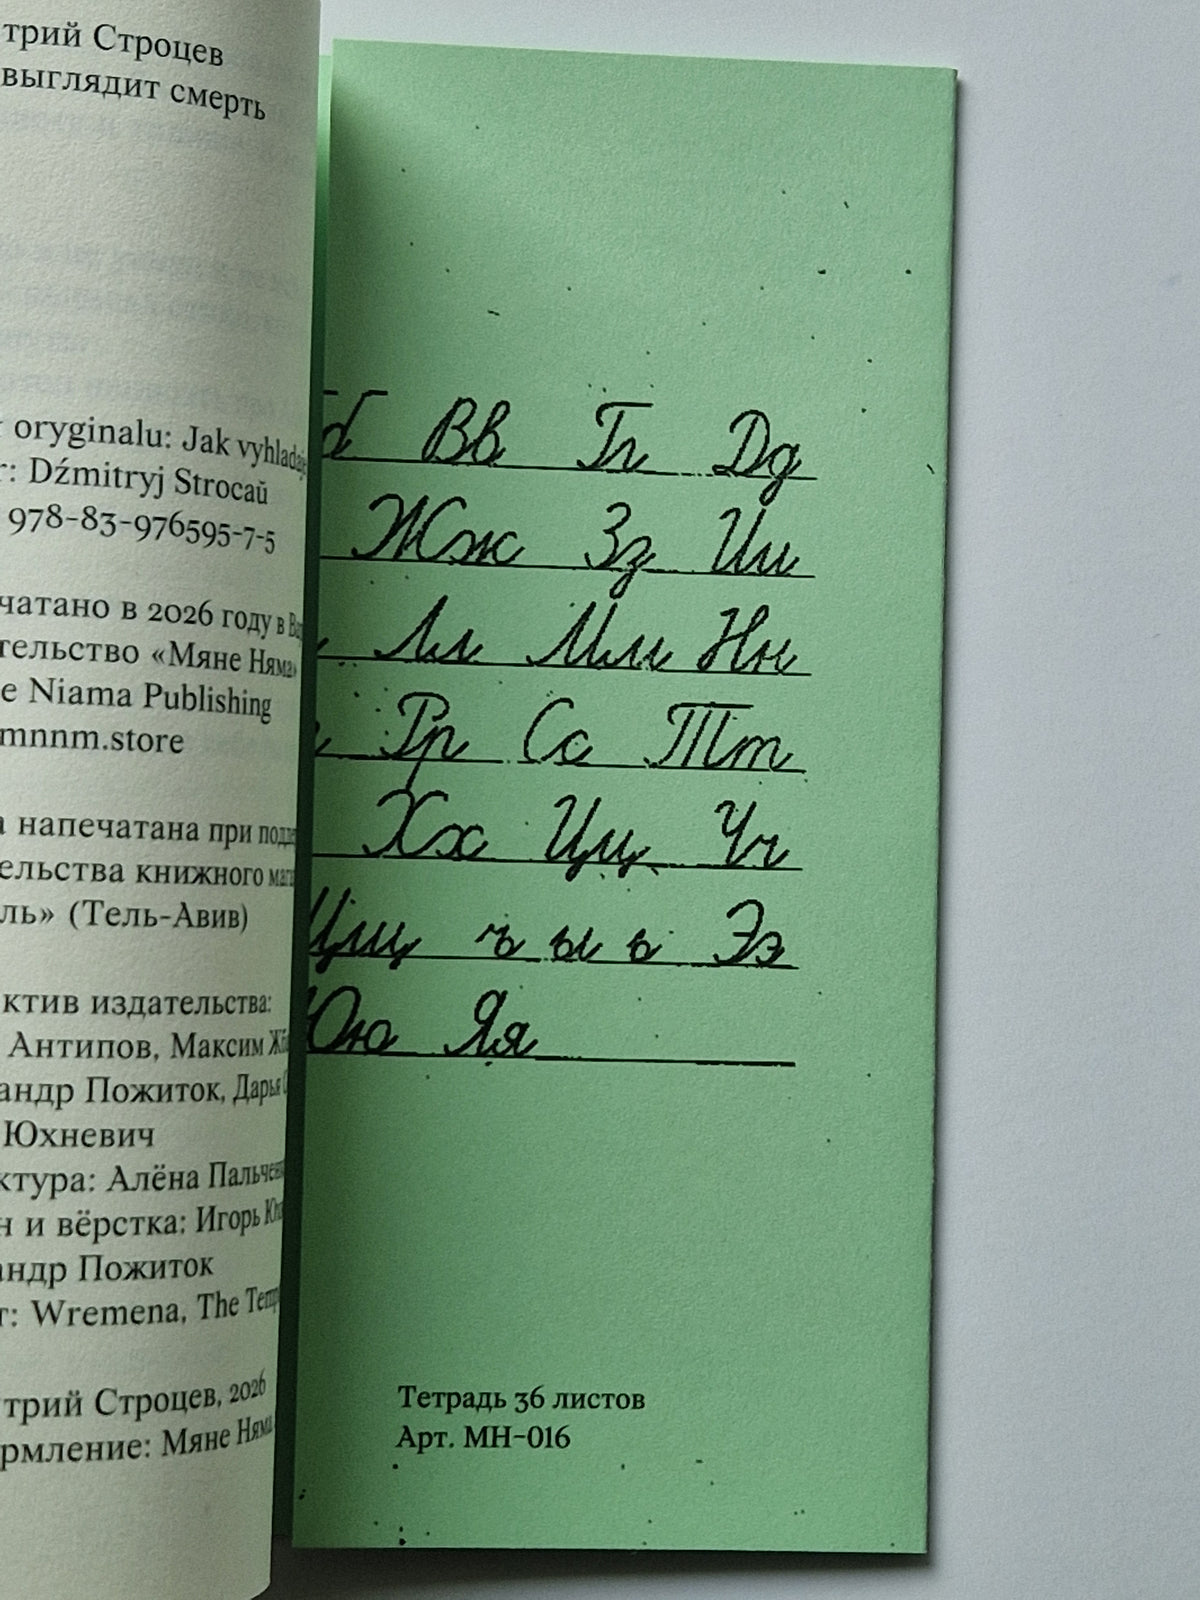 трий Строцев
выглядит смерть
oryginalu: Jak vyhladaje
r: Dźmitryj Strocaŭ
978-83-976595-7-5
чатано в 2026 году в Ва
тельство «Мяне Няма»
e Niama Publishing
mnnm.store
а напечатана при подде
ельства книжного мага
ль» (Тель-Авив)
ктив издательства:
Антипов, Максим Ж
андр Пожиток, Дарья С
Юхневич
ктура: Алёна Пальчен
н и вёрстка: Игорь Юх
андр Пожиток
т: Wremena, The Temp
трий Строцев, 2026
рмление: Мяне Няма
б Вв Гг Дд
Жж Зз Ии
Лл Мм Нн
Рр Сс Тт
Хх Цц Чч
Щщ ъ ы ь Ээ
Юю Яя
Тетрадь 36 листов
Арт. МН-016